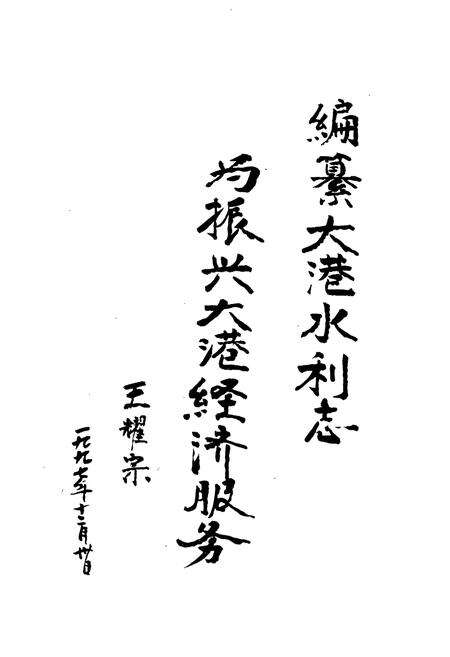 编纂大港水利志
为振兴大港经济服务
王耀宗
一九九七年十二月卅日